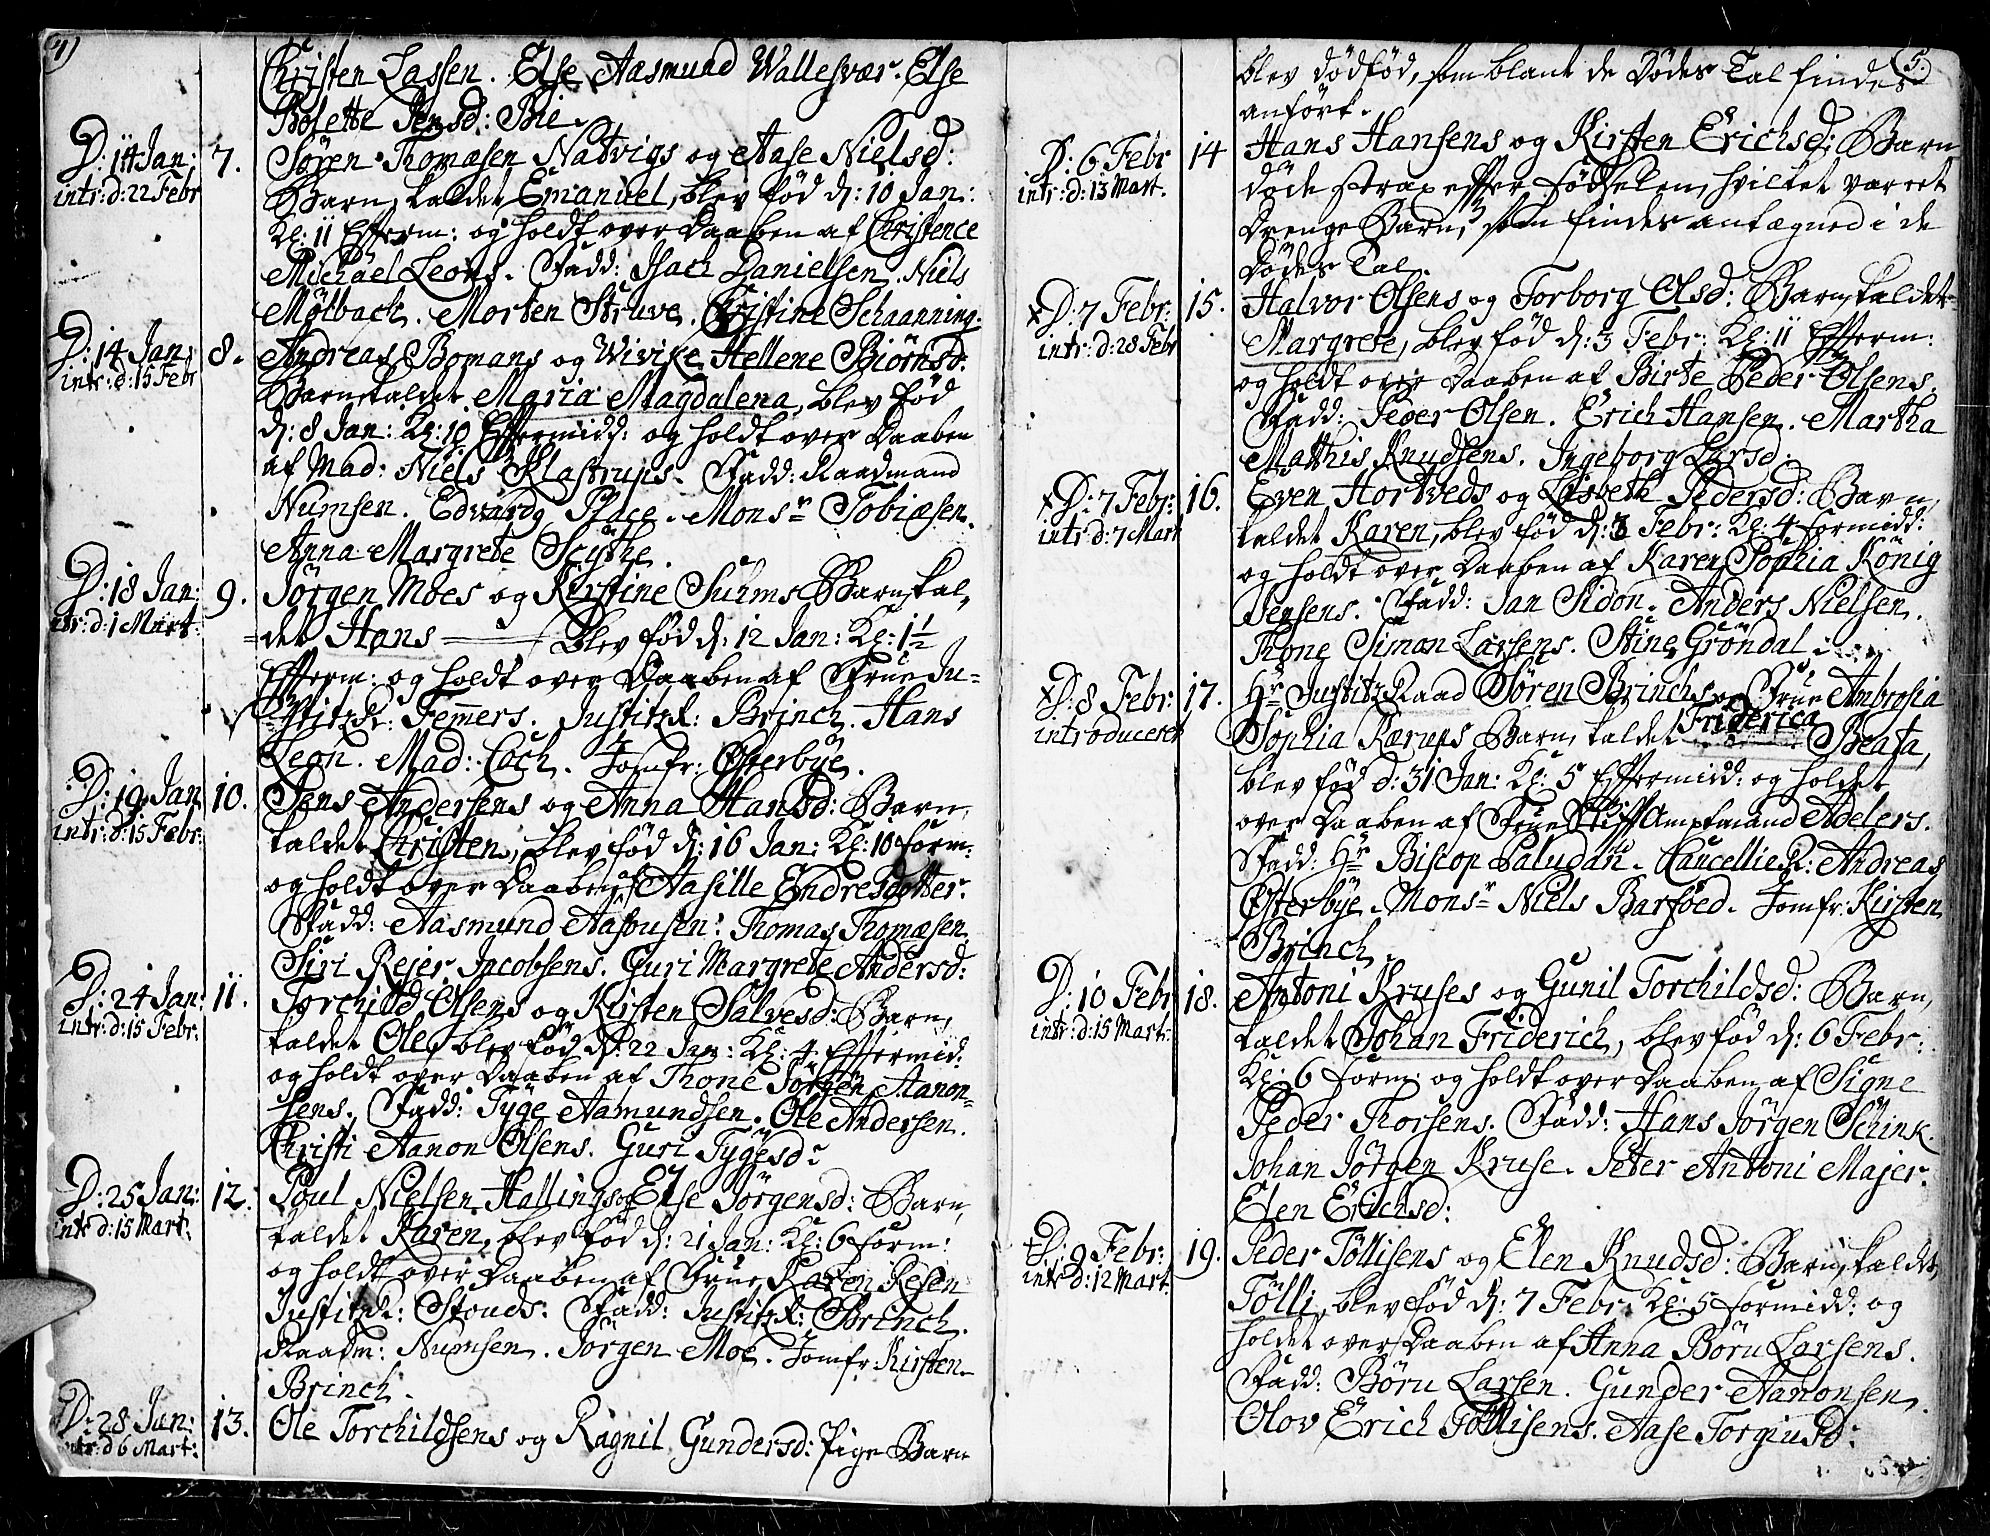 4)
Christen Lassen. Else Aasmund Wallesvær. Else
Bolette Jensd: Bie.
D: 14 Jan: 7. Søren Thomæsen Natvigs og Aase Nielsd:
intr: d: 22 Febr Barn, kaldet Emanuel, blev fød d: 10 Jan:
Kl: 11 Efterm: og holdt over Daaben af Christence
Michael Leons. Fadd: Isach Danielsen. Niels
Mølback. Morten Struve. Cristine Schaanning.
D: 14 Jan: 8. Andreas Bomans og Wivike Hellene Biørnsd:
intr: d: 15 Febr Barn, kaldet Maria Magdalena, blev fød
d: 8 Jan: Kl: 10 Eftermidd: og holdt over Daaben
af Mad: Niels Klastrups. Fadd: Raadmand
Numsen. Edvard Place. Monsr Tobiæsen.
Anna Margrete Scythe.
D: 18 Jan: 9. Jørgen Moes og Kirstine Suhms Barn, kal,
intr: d: 1 Mart: det Hans blev fød d: 12 Jan: Kl: 1½
Efterm: og holdt over Daaben af Frue Ju-
stitzR: Femmers. JustitzR: Brinch. Hans
Leon. Mad: Coch. Jomfr: Østerbye.
D: 19 Jan 10. Jens Andersens og Anna Hansd: Barn,
intr: d: 15 Febr: kaldet Christen, blev fød d: 16 Jan: Kl: 10 form:
og holdt over Daaben af Aasille Endresdotter.
Fadd: Aasmund Aasousen. Thomas Thomæsen.
Siri Rejer Jacobsens. Guri Margrete Andersd:
D: 24 Jan: 11. Torchild Olsens og Kirsten Salvesd: Barn,
intr: d: 15 Febr: kaldet Ole, blev fød d: 22 Jan: Kl: 4 Eftermid:
og holdt over Daaben af Thone Jørgen Aanon-
sens. Fadd: Tyge Aamundsen. Ole Andersen.
Christi Aanon Olsens. Guri Tygesd:
D: 25 Jan: 12. Poul Nielsen Hallings og Else Jørgensd: Barn,
intr d: 15 Mart: kaldet Karen, blev fød d: 21 Jan: Kl: 6 form:
og holdt over Daaben af Frue Karen Resen
JustitzR: Stouds. Fadd: JustitzR: Brinch.
Raadm: Numsen. Jørgen Moe. Jomfr Kirsten
Brinch.
D: 28 Jan: 13. Ole Torchildsens og Ragnil Gundersd: Pige Barn
intr: d 6 Mart:
5.
blev dødfød, som blant de Dødes Tal findes
anført.
D: 6 Febr 14 Hans Hansens og Kirsten Erichsd: Barn
intr: d: 13 Mart. døde strax efter Fødselen, hvilket var et
Drenge Barn, som findes antegned i de
Dødes Tal.
D: 7 Febr: 15. Halvor Olsens og Torborg Olsd: Barn, kaldet
intr: d: 28 Febr Margrete, blev fød d: 3 Febr: Kl: 11 Efterm:
og holdt over Daaben af Birte Peder Olsens.
Fadd: Peder Olsen. Erich Hansen. Martha
Mathis Knudsens. Ingeborg Larsd:
D: 7 Febr: 16. Even Hortveds og Lisbeth Pedersd: Barn,
intr: d: 7 Mart kaldet Karen, blev fød d: 3 Febr: Kl: 4 formidd:
og holdt over Daaben af Karen Sophia König
Jensens. Fadd: Jan Sidon. Anders Nielsen.
Thone Simon Larsens. Stine Grøndal
D: 8 Febr: 17. Hr JustitzRaad Søren Brinchs og Frue Ambrosia
introduceret Sophia Rærups Barn, kaldet Friderica Beata,
blev fød d: 31 Jan: Kl: 5 Eftermidd: og holdet
over Daaben af Frue StiftAmptmand Adelers.
Fadd: Hr Biscop Paludan. CancellieR: Andreas
Østerbye. Monsr Niels Barfoed. Jomfr: Kirsten
Brinch.
D: 10 Febr 18. Antoni Kruses og Gunil Torchildsd: Barn,
intr: d: 15 Mart: kaldet Johan Friderich, blev fød d: 6 Febr:
Kl: 6 form: og holdt over Daaben af Signe
Peder Thorsens. Fadd: Hans Jørgen Schink.
Johan Jørgen Kruse. Peter Antoni Majer.
Elen Erichsd:
D: 9 Febr: 19. Peder Tøllisens og Elen Knudsd: Barn, kaldet,
intr d: 12 Mart: Tølli, blev fød d: 7 Febr: Kl: 5 formidd: og
holdet over Daaben af Anna Børu Larsens.
Fadd: Børu Larsen. Gunder Aanonsen.
Olov Erich Tøllisens. Aase Torgiusd: